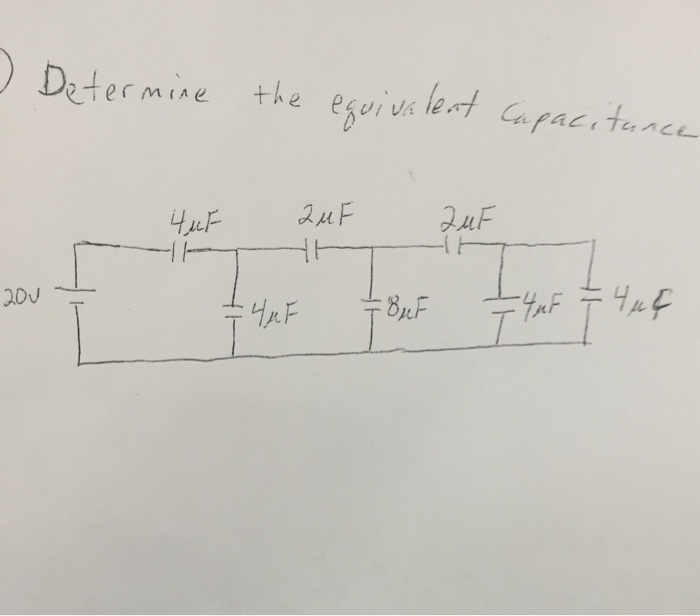 ) Determine the equivalent Capacitance
4μF 2μF 2μF
20V 4μF 8μF 4μF 4μF